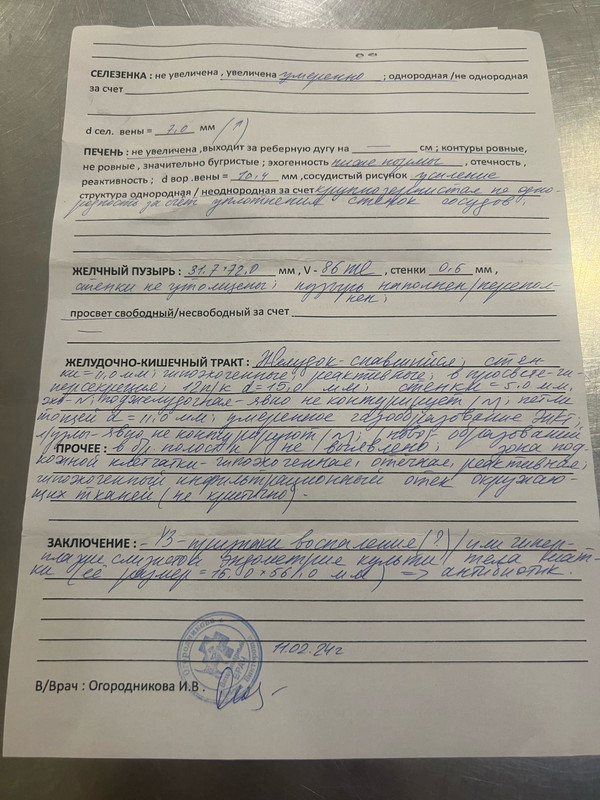 СЕЛЕЗЕНКА : не увеличена , увеличена умеренно ; однородная /не однородная
за счет
d сел. вены = 7,0 мм (N)
ПЕЧЕНЬ : не увеличена ,выходит за реберную дугу на — см ; контуры ровные,
не ровные , значительно бугристые ; эхогенность ниже нормы , отечность ,
реактивность ; d вор .вены = 10,4 мм ,сосудистый рисунок усиление
структура однородная / неоднородная за счет крупнозернистая не одно-
родность за счет уплотнения стенок сосудов.
ЖЕЛЧНЫЙ ПУЗЫРЬ : 31,7*72,0 мм , V - 86 ml , стенки 0,6 мм ,
стенки не утолщены; пузырь наполнен/перепол-
нен;
просвет свободный/несвободный за счет
—
ЖЕЛУДОЧНО-КИШЕЧНЫЙ ТРАКТ : Желудок - спавшийся; стен-
ки = 11,0 мм; гипоэхогенные, реактивное; в просвете - ги-
персекреция; 12п/к d = 15,0 мм; стенки = 5,0 мм,
эхо - N; поджелудочная - явно не контурирует /N/; петли
тощей d = 11,0 мм; умеренное газообразование ЖКТ;
л/узлы - явно не контурируют /N/; новообразований
ПРОЧЕЕ : в бр. полости не выявлено; зона под-
кожной клетчатки - гипоэхогенная, отечная, реактивная;
гипоэхогенный инфильтрационный отек окружаю-
щих тканей (не критично) -
ЗАКЛЮЧЕНИЕ : - УЗ - признаки воспаление (?) / или гипер-
плазии слизистой эндометрие культи тела мат-
ки (её размер = 76,0*56,0 мм) => антибиотик.
11.02.24г
В/Врач : Огородникова И.В .